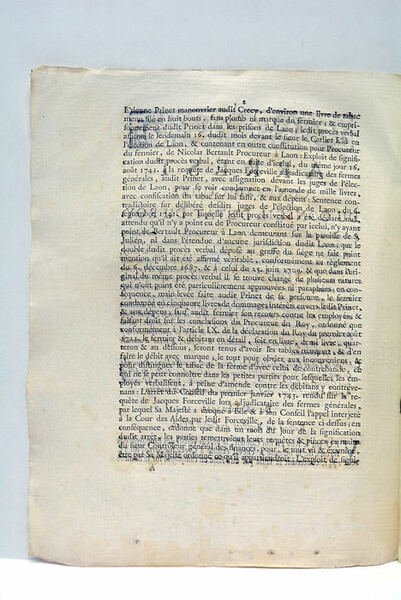 2
Etienne Prinet manouvrier audit Crecy, d'environ une livre de tabac
menu filé en huit bouts, sans plomb ni marque du fermier, & emprisonnement
dudit Prinet dans les prisons de Laon; ledit procès verbal
affirmé le lendemain 16. dudit mois devant le sieur le Carlier Elû en
l'élection de Laon, & contenant en outre constitution pour Procureur
du fermier, de Nicolas Bertault Procureur à Laon: Exploit de signification
dudit procès verbal, étant en suite d'icelui, du même jour 16.
août 1741. à la requête de Jacques Forceville adjudicataire des fermes
générales, audit Prinet, avec assignation devant les juges de l'élection
de Laon, pour se voir condamner en l'amende de mille livres,
avec confiscation du tabac sur lui saisi, & aux dépens: Sentence contradictoire
sur déliberé desdits juges de l'élection de Laon, du 6.
septembre 1741. par laquelle ledit procès verbal a été déclaré nul,
attendu qu'il n'y a point eu de Procureur constitué par icelui, n'y ayant
point de Bertault Procureur à Laon demeurant sur la paroisse de S.
Julien, ni dans l'étendue d'aucune jurisdiction dudit Laon; que le
double dudit procès verbal déposé au greffe du siége ne fait point
mention qu'il ait été affirmé véritable, conformément au réglement
du 6. décembre 1687. & à celui du 25. juin 1709. & que dans l'original
du même procès verbal il se trouve chargé de plusieurs ratures
qui n'ont point été particulierement approuvées ni paraphées; en conséquence,
main-levée faite audit Prinet de sa personne, le fermier
condamné en cinquante livres de dommages intérêts envers ledit Prinet,
& aux dépens, sauf audit fermier son recours contre les employés; &
faisant droit sur les conclusions du Procureur du Roy, ordonné que
conformément à l'article IX. de la déclaration du Roy du premier août
1721. le fermier & débitans en détail, soit en livre, demi livre, quarteron
& au dessous, seront tenus d'avoir les tabacs marqués, & d'en
faire le débit avec marque, le tout pour obvier aux inconvéniens, &
pour distinguer le tabac de la ferme d'avec celui de contrebande, ce
qui ne se peut connoître dans les petites parties pour lesquelles les employés
verbalisent, à peine d'amende contre les débitans y contrevenans:
L'arrêt du Conseil du premier janvier 1743. rendu sur la requête
de Jacques Forceville lors adjudicataire des fermes générales,
par lequel Sa Majesté a évoqué à Elle & à son Conseil l'appel interjeté
à la Cour des Aides par ledit Forceville, de la sentence ci-dessus; en
conséquence, ordonne que dans un mois du jour de la signification
dudit arrêt, les parties remettroient leurs requêtes & pièces ès mains
du sieur Contrôleur général des finances, pour, le tout vû & examiné,
être par Sa Majesté ordonné ce qu'il appartiendroit: L'exploit de signi-